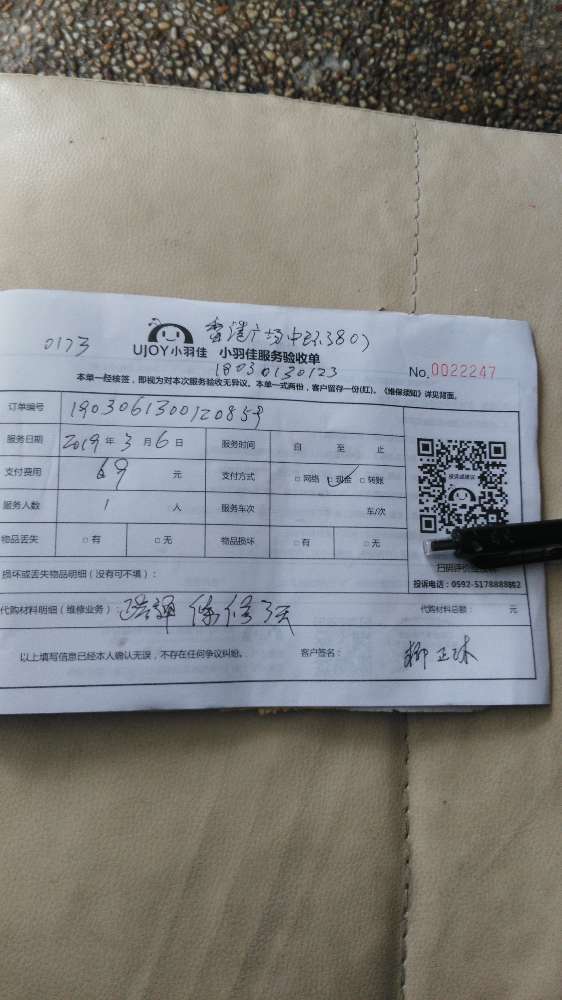 香港广场中环3807
0173
UJOY小羽佳 小羽佳服务验收单
18030130123
No.0022247
本单一经核签，即视为对本次服务验收无异议。本单一式两份，客户留存一份(红)。《维保须知》详见背面。
订单编号 1903061300120859
服务日期 2019年3月6日 服务时间 自 至 止
支付费用 69 元 支付方式 □网络 □现金 □转账
服务人数 1 人 服务车次 车/次
物品丢失 □有 □无 物品损坏 □有 □无
投诉或建议
扫码评价
损坏或丢失物品明细（没有可不填）：
投诉电话：0592-5178888转2
代购材料明细（维修业务） 保修3天
代购材料总额 元
以上填写信息已经本人确认无误，不存在任何争议纠纷。 客户签名：